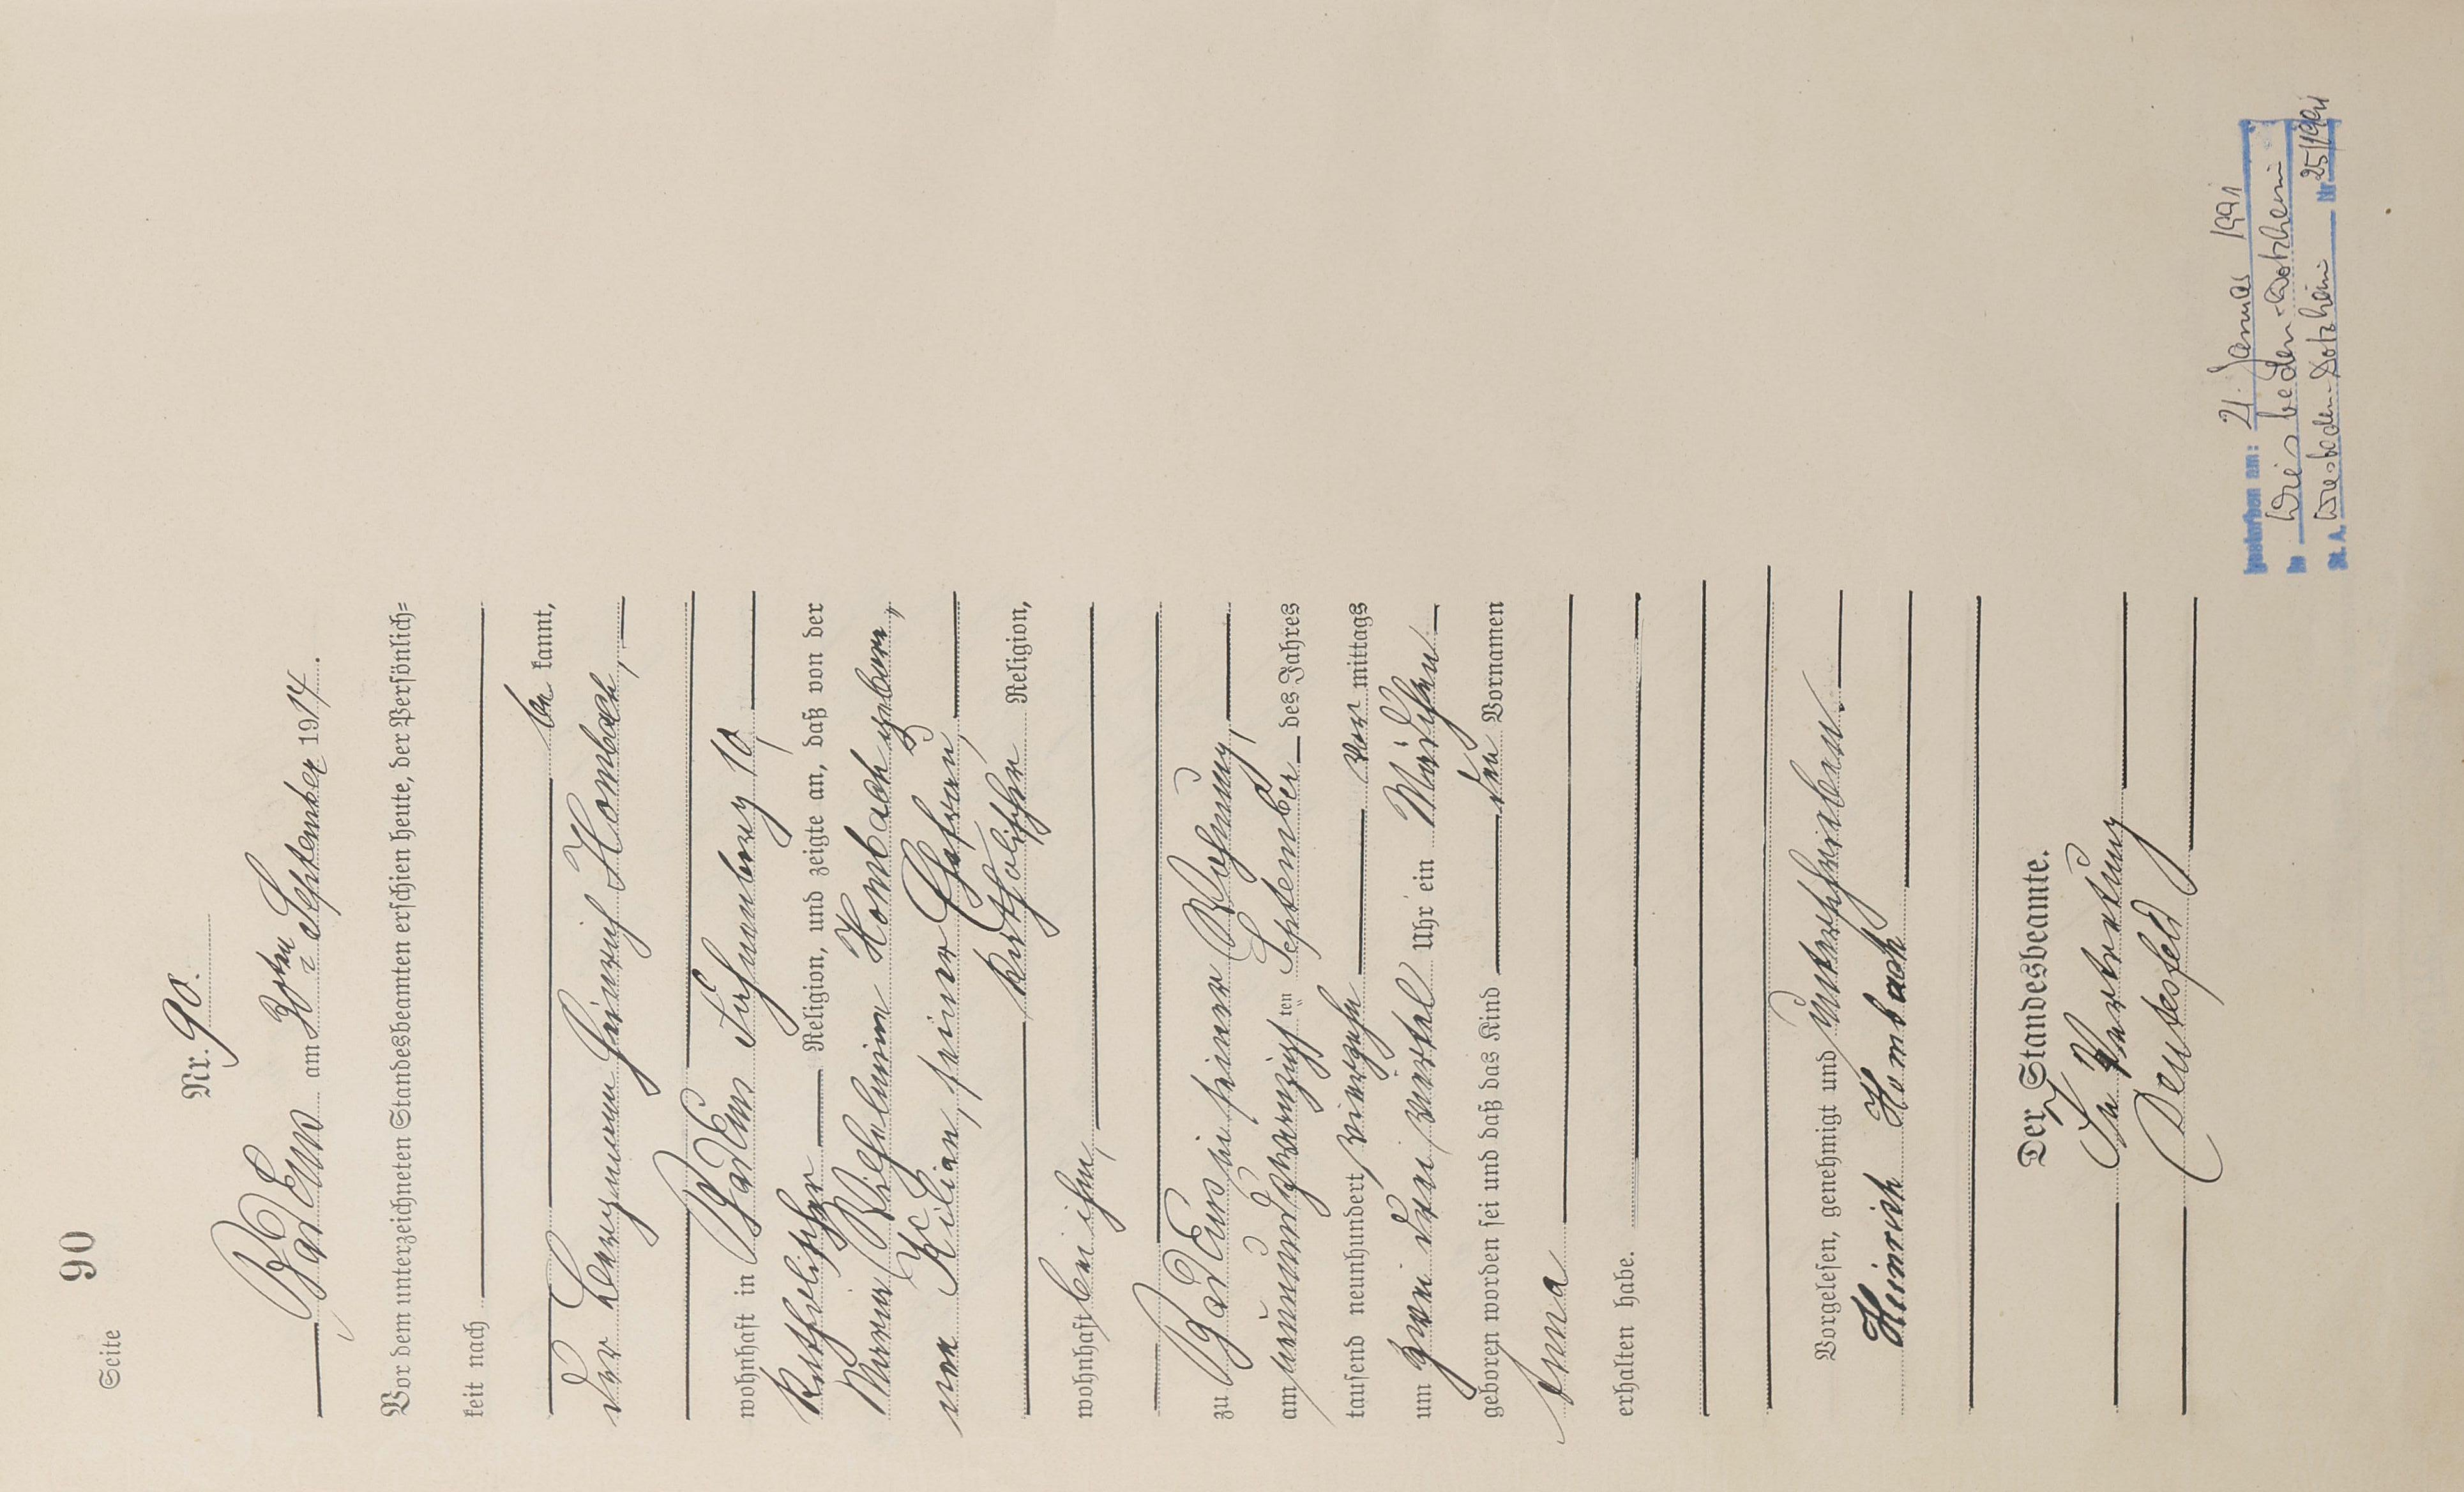 Seite 90
Nr. 90.
Bad Ems am 30ten September 1914.
Vor dem unterzeichneten Standesbeamten erschien heute, der Persönlich=
keit nach
be kannt,
der Bergmann Heinrich Hombach,
wohnhaft in Bad Ems
katholischer Religion, und zeigte an, daß von der
Maria Wilhelmine Hombach gebore,
nen Kilian, seiner Ehefrau,
katholischer Religion,
wohnhaft bei ihm,
zu Bad Ems in seiner Wohnung,
am neunundzwanzigsten September des Jahres
tausend neunhundert vierzehn vor mittags
um zwei drei viertel Uhr ein Mädchen
geboren worden sei und daß das Kind den Vornamen
Anna
erhalten habe.
Vorgelesen, genehmigt und unterschrieben.
Heinrich Hombach
Der Standesbeamte.
In Vertretung
Deusesfeld
gestorben am: 21. Januar 1991
in Wiesbaden-Dotzheim
St. A. Wiesbaden-Dotzheim Nr 25/1991